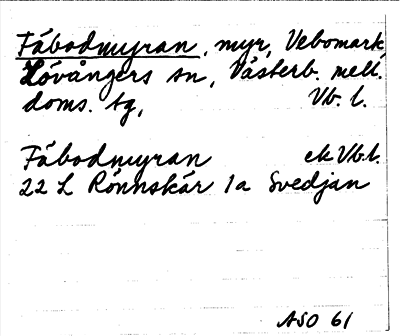 Fäbodmyran, myr, Vebomark,
Lövångers sn, Västerb. mell.
doms. tg, Vb. l.
Fäbodmyran ek Vb.l.
22 L Rönnskär 1a Svedjan
ASO 61